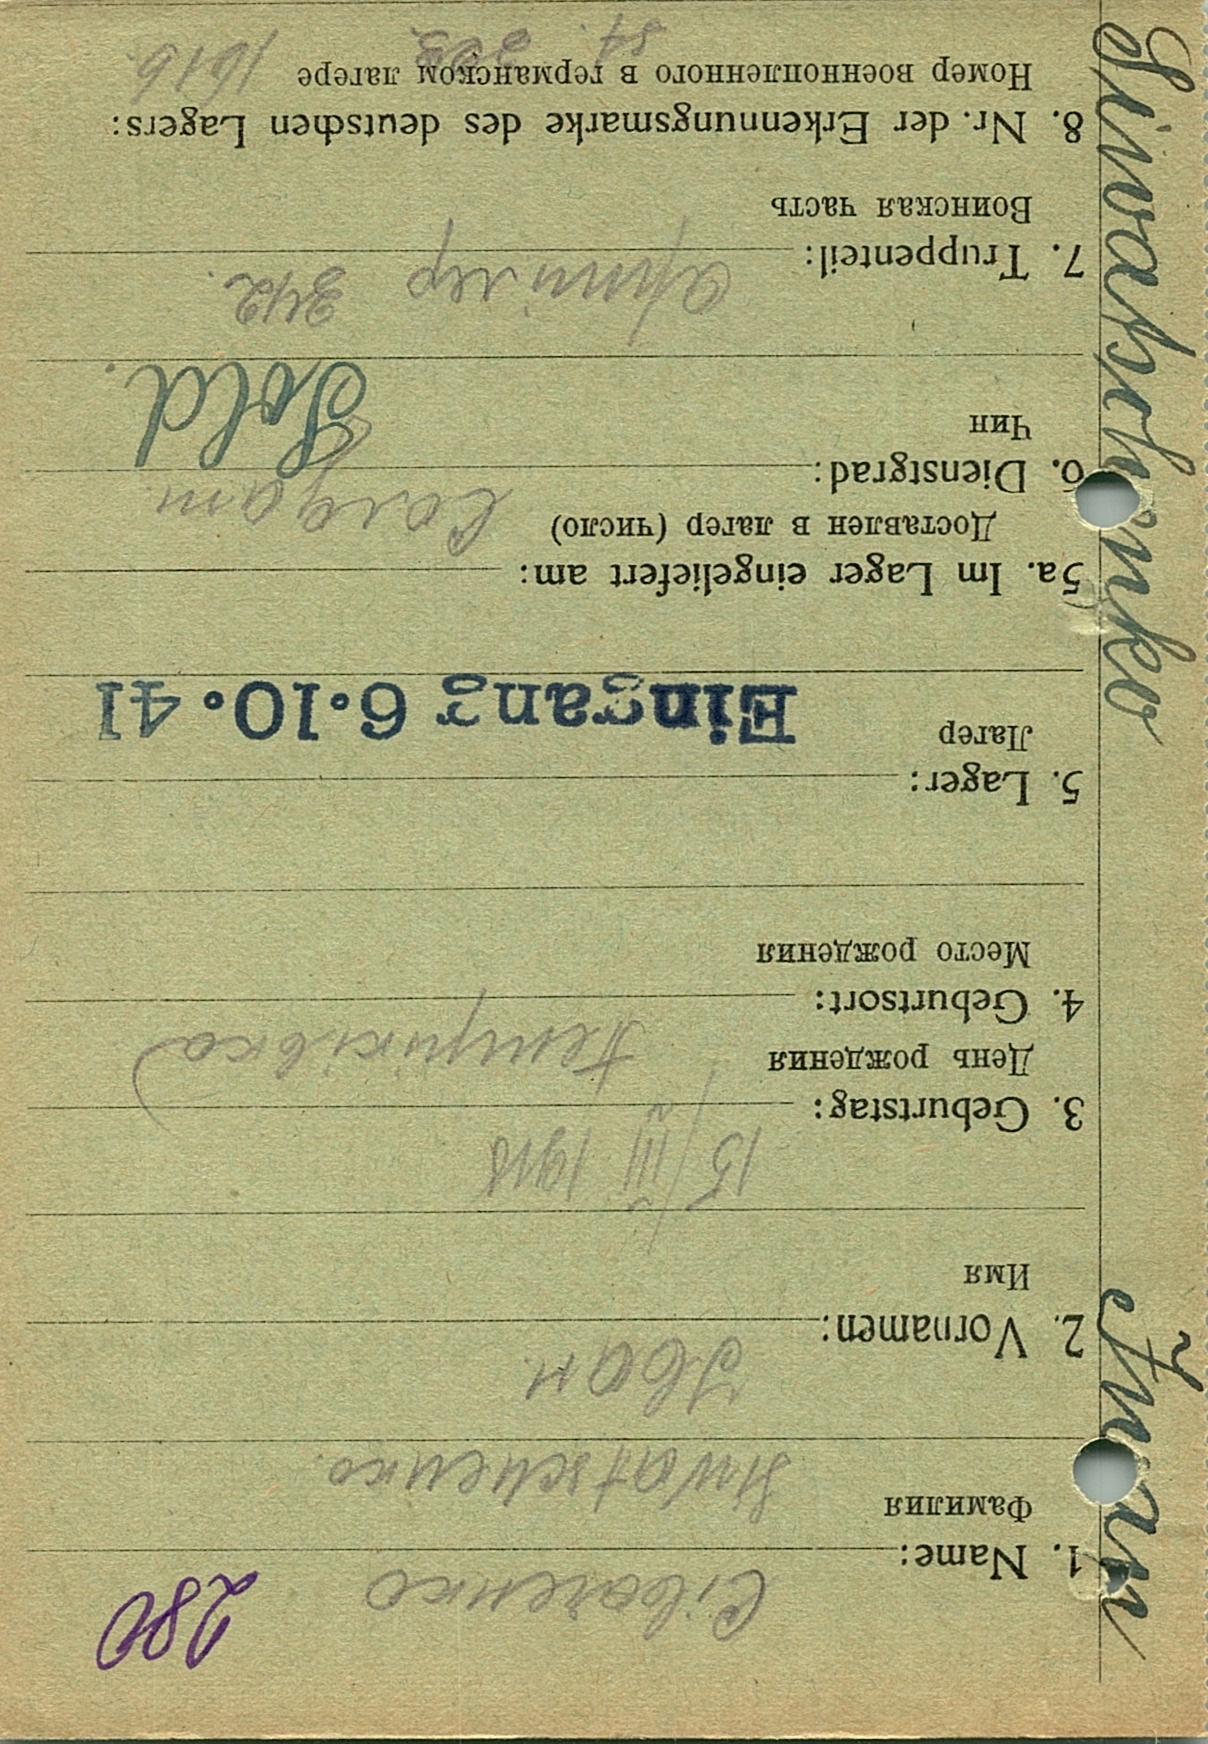 280
1. Name: Сіваченко
Фамилия
Siwatschenko.
2. Vornamen: Іван
Имя
3. Geburtstag: 15/III 1918
День рождения
4. Geburtsort:
Место рождения
5. Lager:
Лагерь
Eingang 6.10.41
5a. Im Lager eingeliefert am:
Доставлен в лагер (число)
6. Dienstgrad: Солдат
Чин
Sold.
7. Truppenteil: 342.
Воинская часть
8. Nr. der Erkennungsmarke des deutschen Lagers:
Номер военнопленного в германском лагере
Siwatschenko Iwan